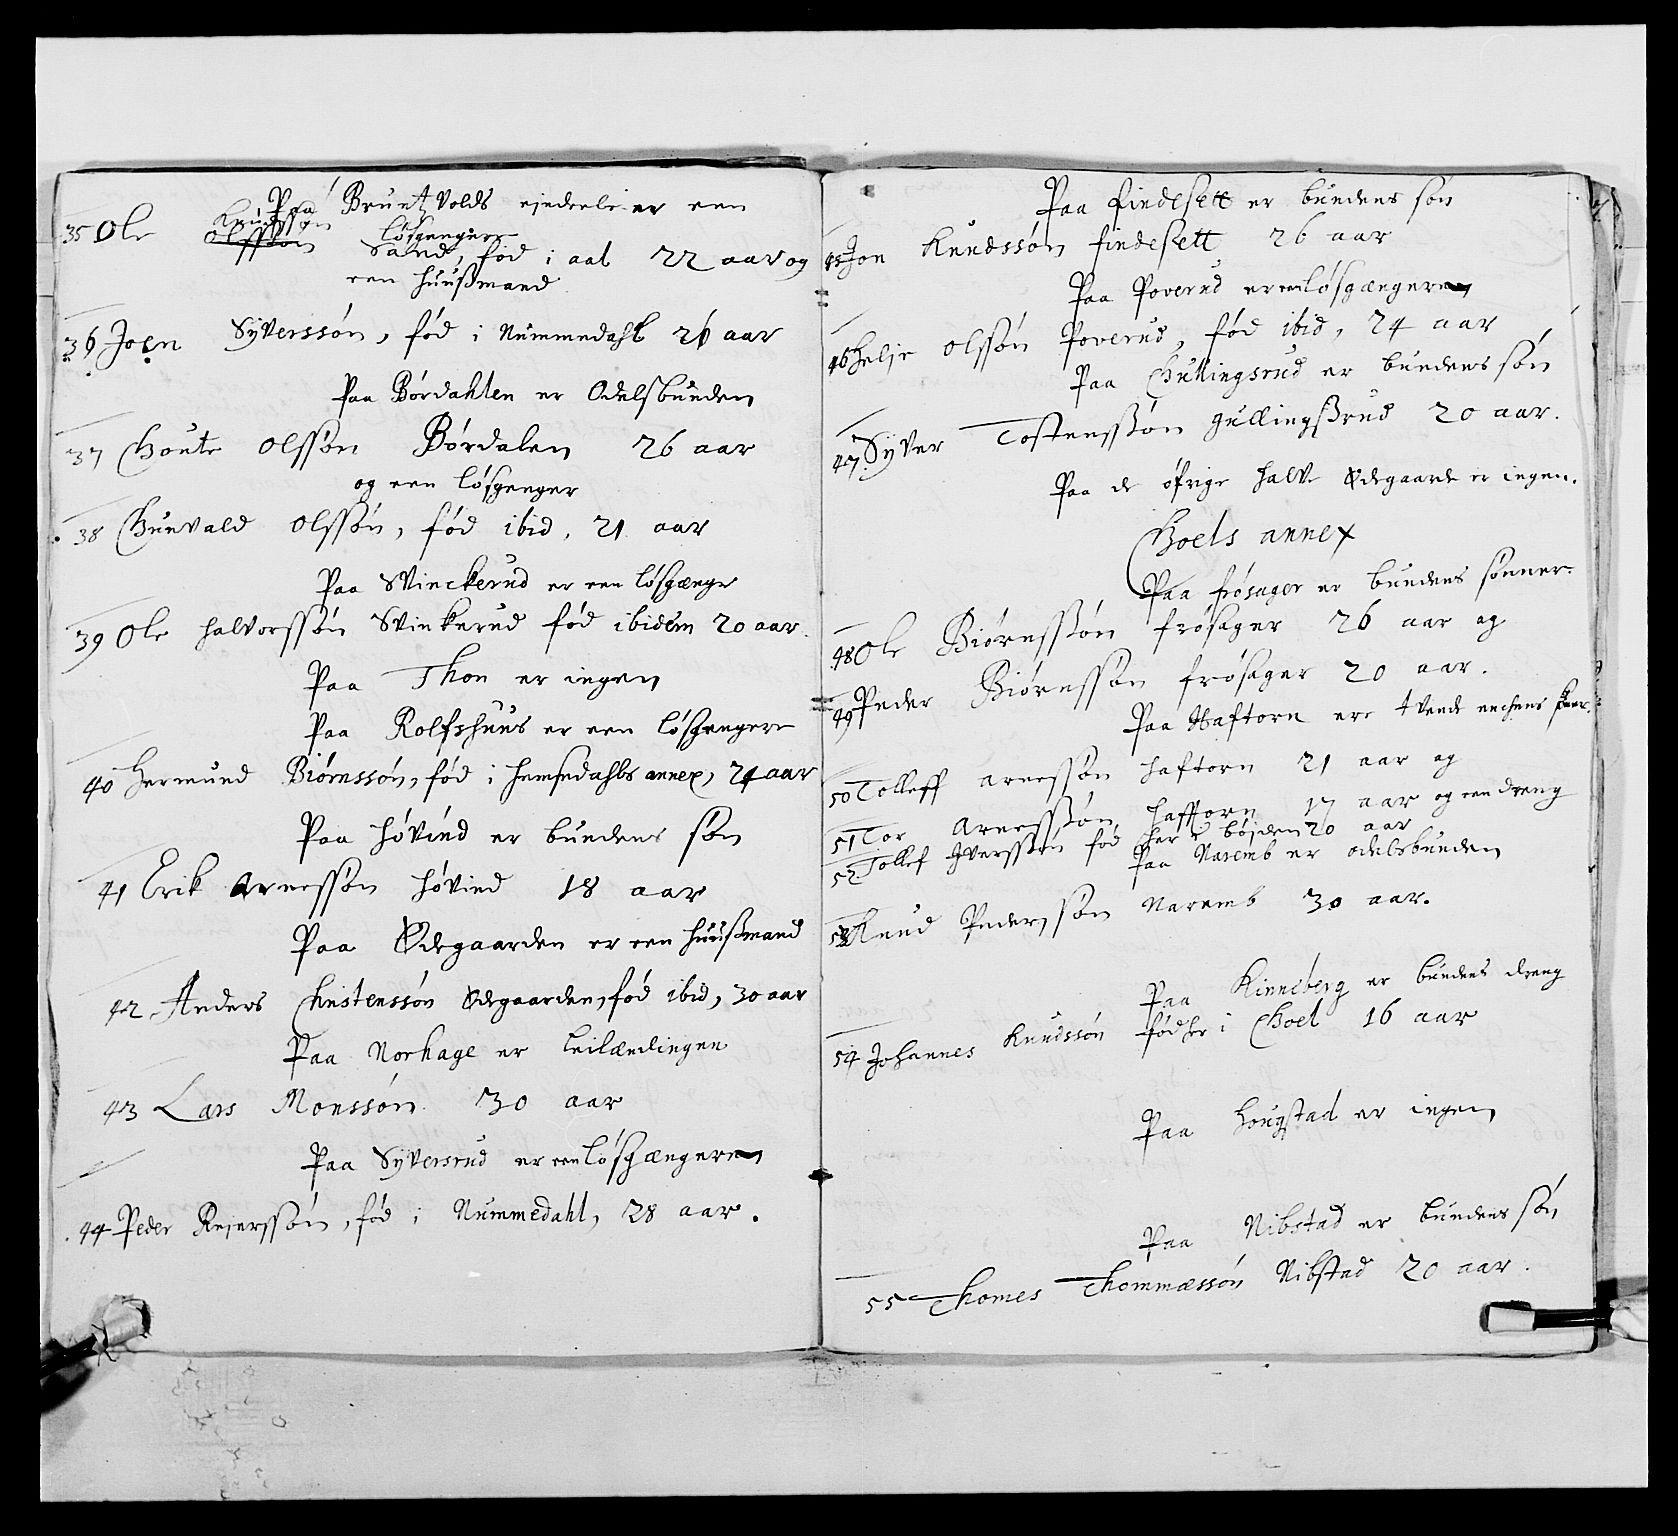 Paa Bruntvolds ejendeele er een
løsgengere
35 Ole Knudssøn Olssøn Sand, fød i aal 22 aar og
een huusmand
36 Joen Syverssøn, fød i Nummedahl 26 aar
Paa Børdahlen er Odelsbunden
37 Goute Olssøn Børdalen 26 aar
og een løsgenger
38 Gunvald Olssøn, fød ibid, 21 aar
Paa Svinckerud er een løsgænge
39 Ole halvorssøn Svinkerud fød ibidem 20 aar.
Paa Thon er ingen
Paa Rolfshuus er een løsgengere
40 Hermund Biørnssøn, fød i hemsedahls annex, 24 aar
Paa høvind er bundens søn
41 Erik Arnessøn høvind 18 aar
Paa Ødegaarden er een huusmand
42 Anders Christenssøn Ødegaarden, fød ibid, 30 aar
Paa Norhage er leilændingen
43 Lars Monssøn 30 aar
Paa Syversrud er een løsgængere
44 Peder Reierssøn, fød i Nummedahl, 28 aar.
Paa findesett er bundens søn
45 Jon Knudssøn findesett 26 aar
Paa Poverud er een løsgængere
46 Helje Olssøn Poverud, fød ibid, 24 aar
Paa Gullingsrud er bundens søn
47 Syver Tostenssøn gullingsrud 20 aar.
Paa de øfrige halve Ødegaarde er ingen.
Goels annex
Paa frøsager er bundens sønner.
48 Ole Biørnssøn frøsager 26 aar og
49 Peder Biørnssøn frøsager 20 aar.
Paa Haftorn ere tvende enchens
50 Tolleff Arnessøn haftorn 21 aar og
51 Tor Arnessøn haftorn 17 aar og een dreng
52 Tollef Iverssøn fød her i bøjden 20 aar
Paa Naremb er odelsbunden
53 Knud Pederssøn Naremb 30 aar.
Paa Kinneberg er bundens dreng
54 Johannes Knudssøn fød her i Goel 16 aar
Paa hougstad er ingen
Paa Nibstad er bundens søn
55 Thomes Thommæssøn Nibstad 20 aar.